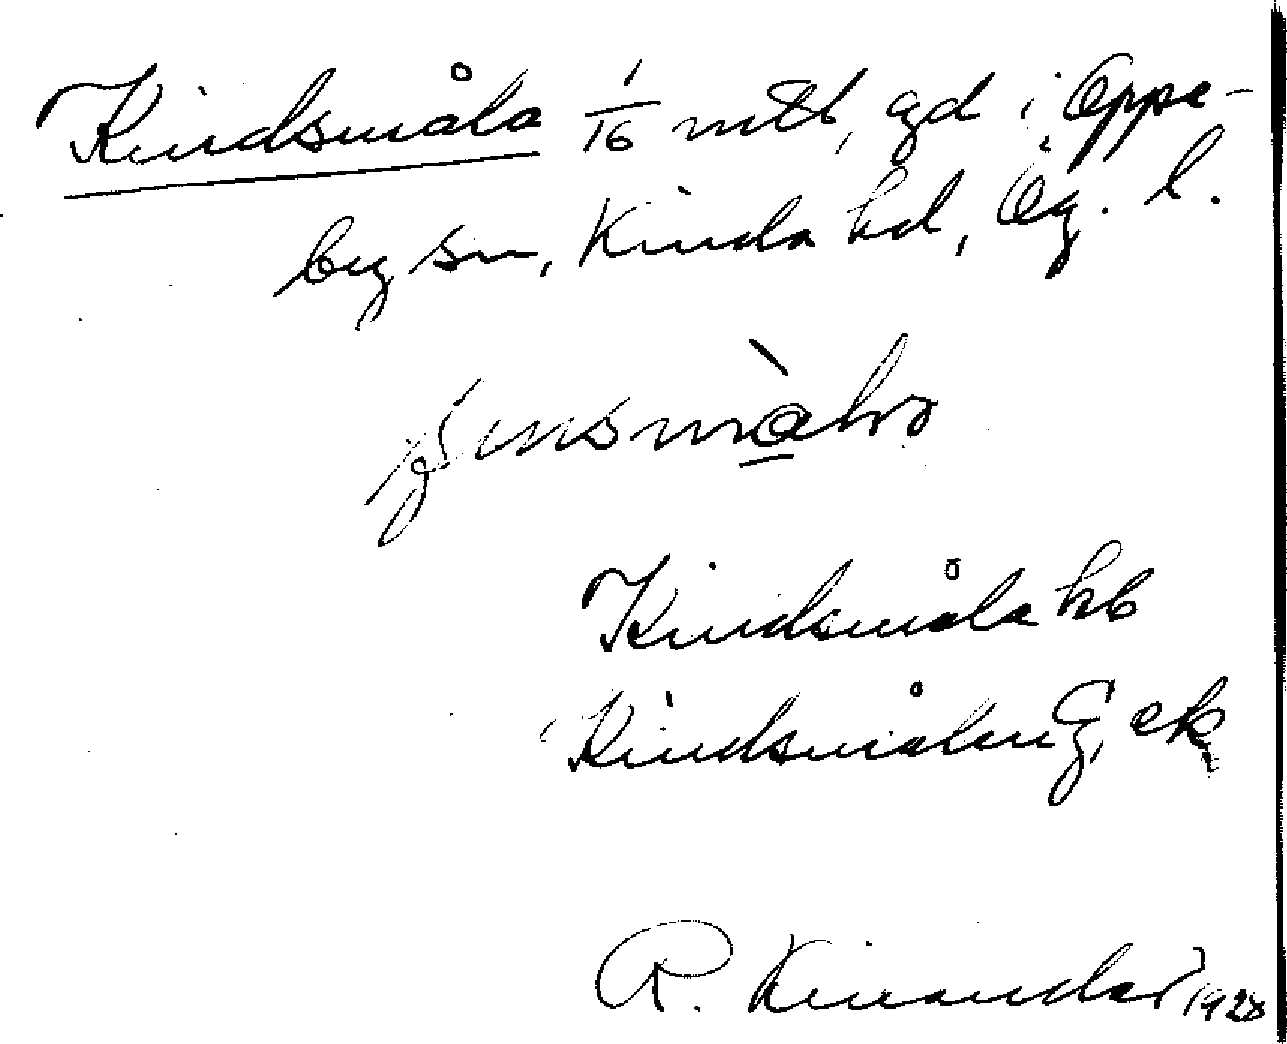 Kindsmåla 1/16 mtl, gd i Oppe-
by sn, Kinda hd, Ög. l.
Kindsmåla kb
Kindsmålen G, ek
R. Kinander 1928